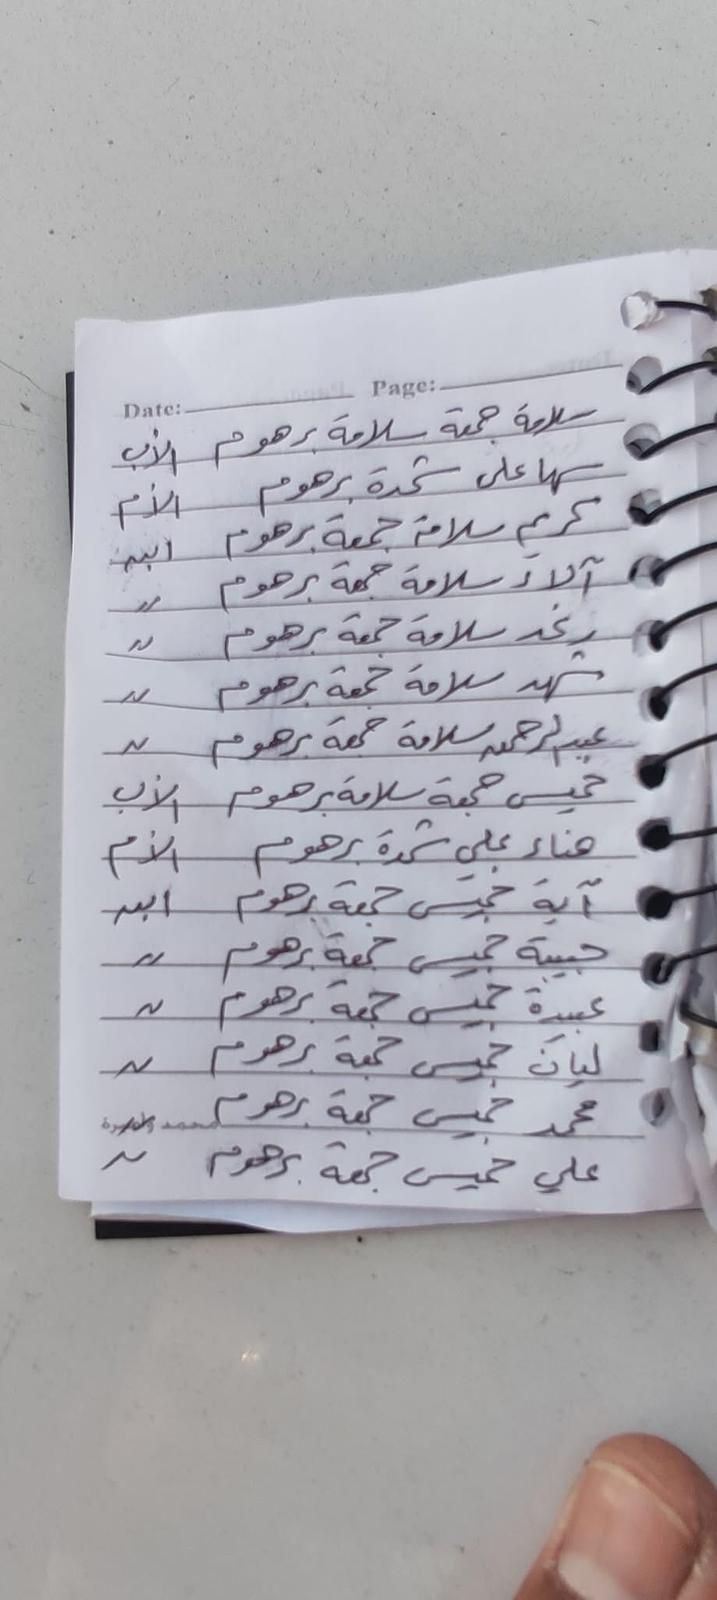 Date: Page:
سلامة جمعة سلامة برهوم الأب
سها على شحدة برهوم الأم
كريم سلامة جمعة برهوم ابن
آلاء سلامة جمعة برهوم "
رغد سلامة جمعة برهوم "
شهد سلامة جمعة برهوم "
عبدالرحمن سلامة جمعة برهوم "
خميس جمعة سلامة برهوم الأب
هناء علي شحدة برهوم الأم
آية خميس جمعة برهوم ابن
حبيبة خميس جمعة برهوم "
عبيدة خميس جمعة برهوم "
ليان خميس جمعة برهوم "
محمد خميس جمعة برهوم
علي خميس جمعة برهوم "